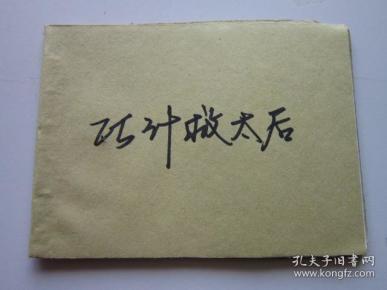 巧计救太后
孔夫子旧书网
www.kongfz.com